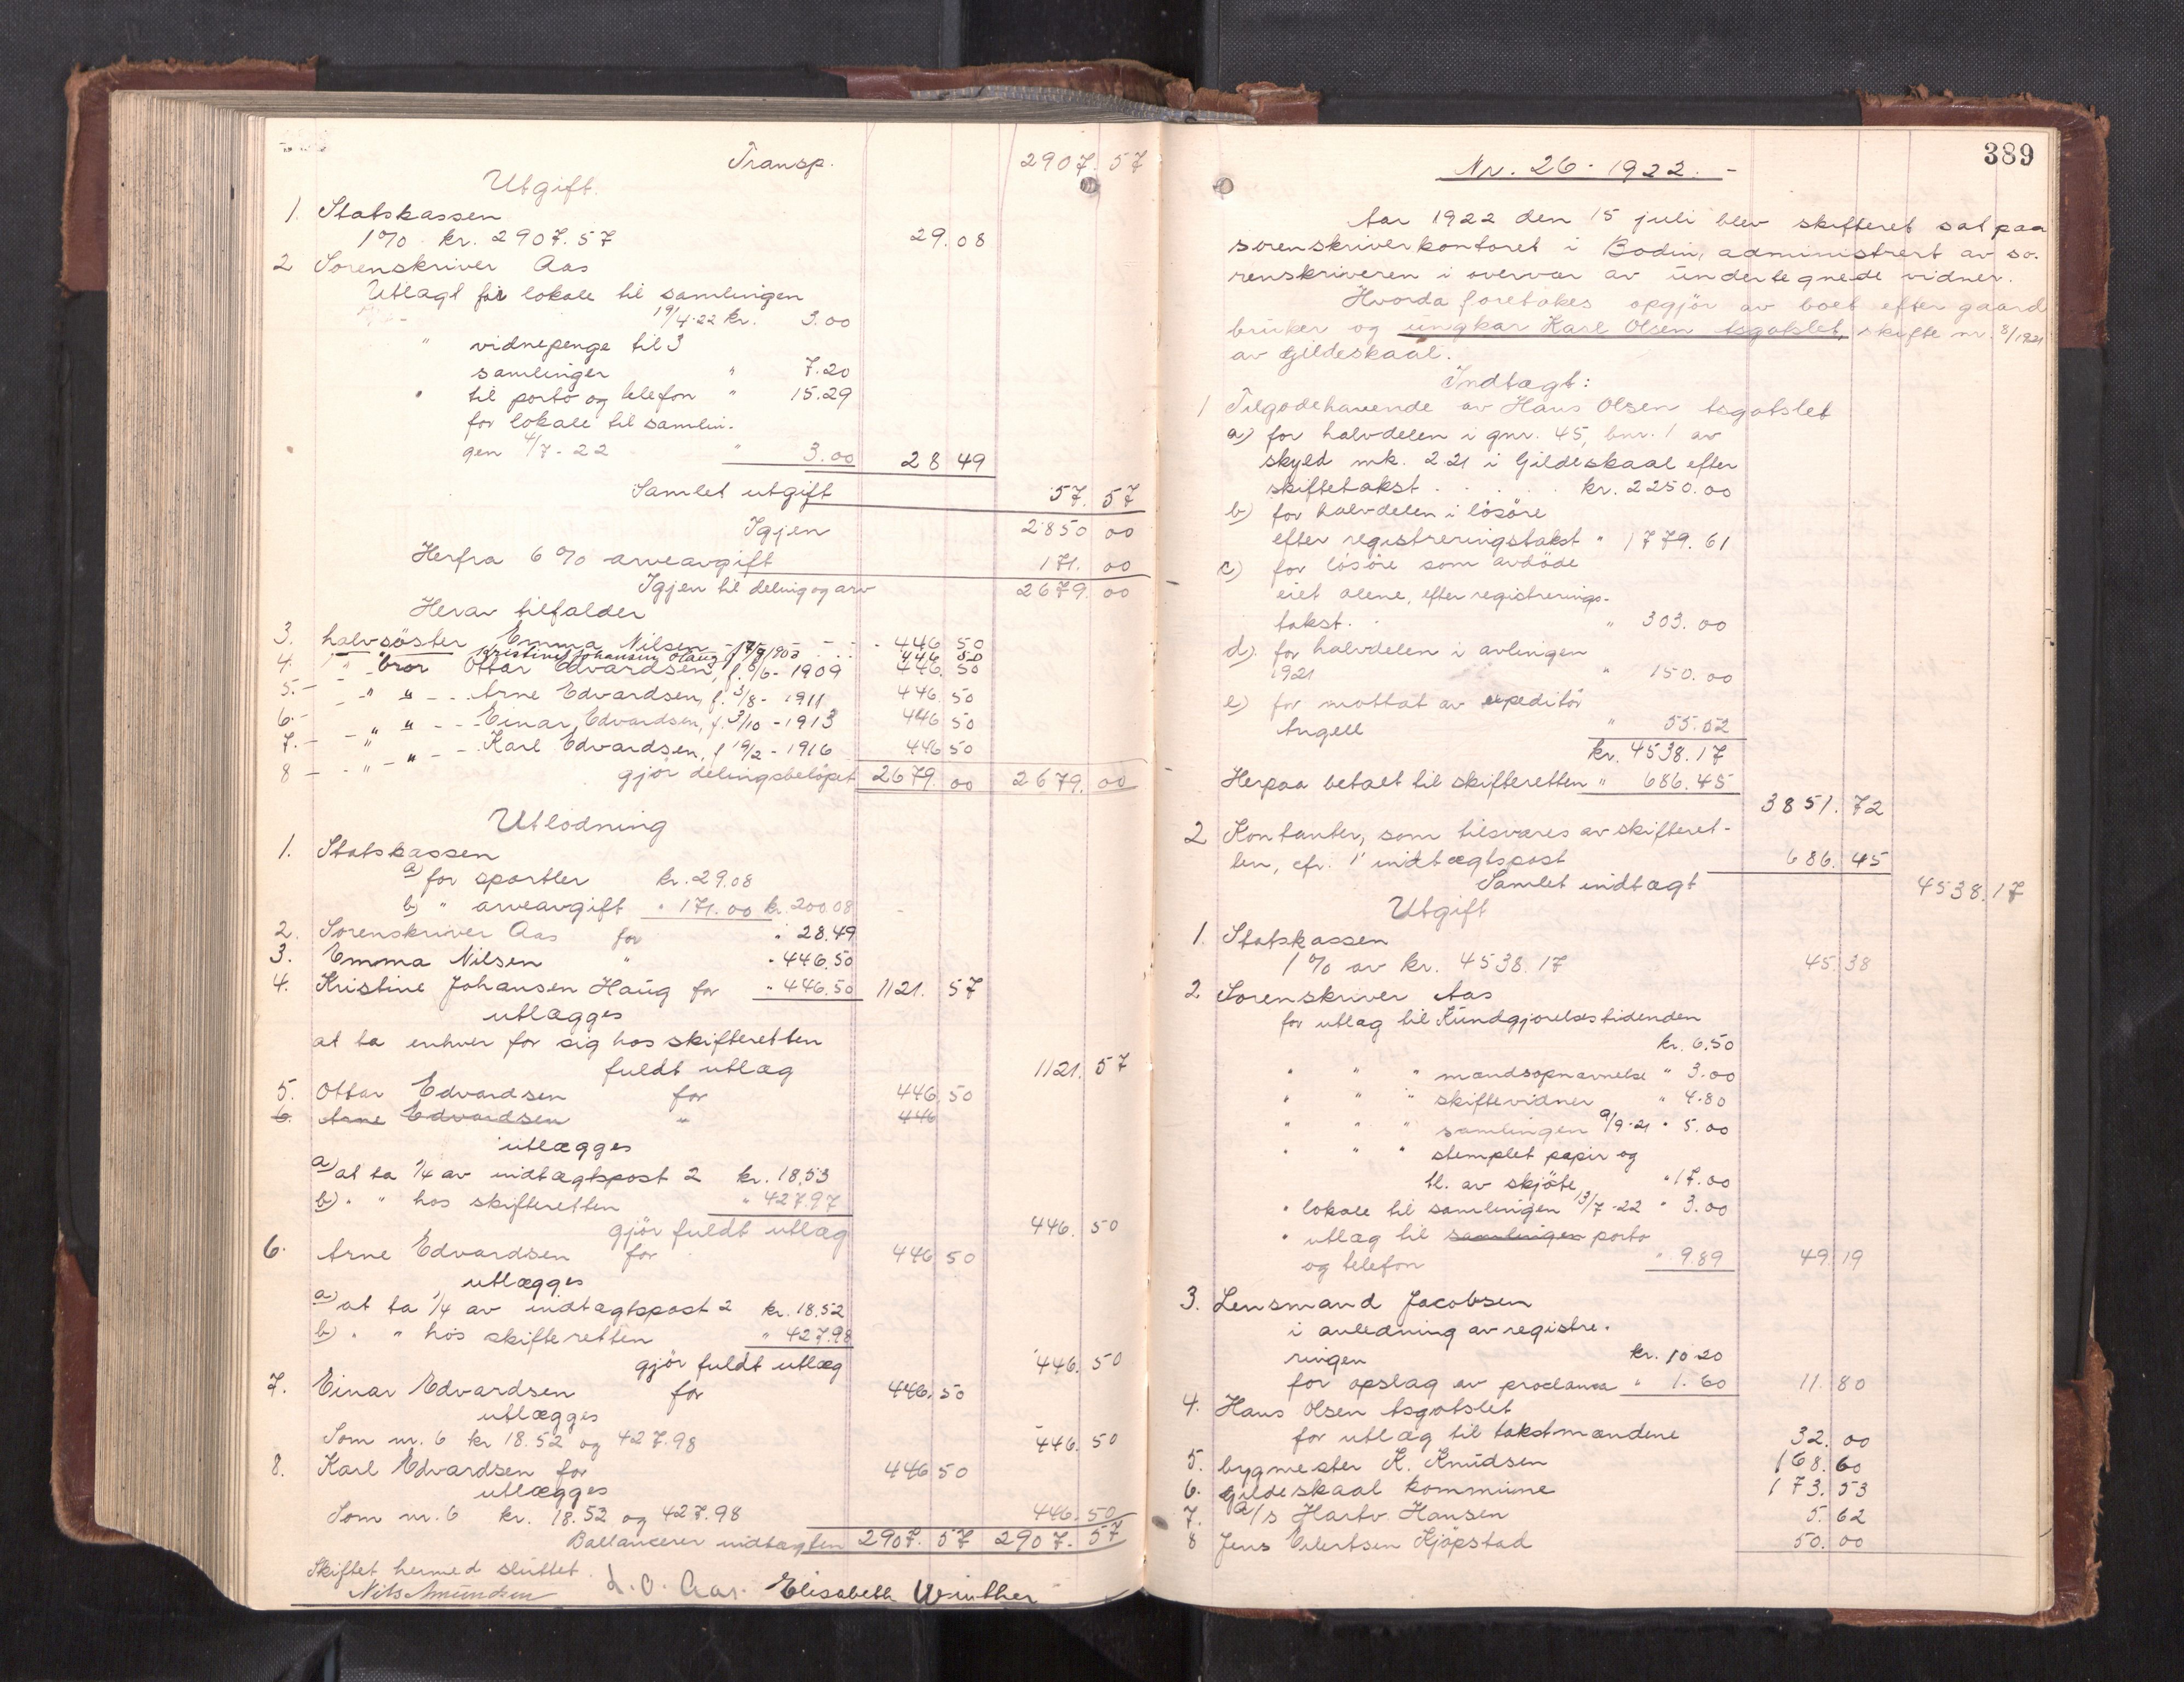 Transp. 2907.57
Utgift.
1. Statskassen
1% kr. 2907.57 29.08
2 Sorenskriver Aas
Utlagt for lokale til samlingen
19/4-22 kr. 3.00
" vidnepenge til 3
samlinger " 7.20
" til porto og telefon " 15.29
for lokale til samlin-
gen 4/7-22 " 3.00 28 49
Samlet utgift 57.57
Igjen 2850 00
Herfra 6% arveavgift 171.00
Igjen til deling og arv 2679.00
Herav tilfalder
3. halvsöster Emma Nilsen 446 50
4. " " Kristine Johansen Haug f. 17/9 1903 446 50
5. - " bror Ottar Edvardsen, f. 8/6-1909 446.50
6. - " " - Arne Edvardsen, f. 3/8-1911 446.50
7. - " " - Einar Edvardsen, f. 3/10-1913 446 50
8 - " " - Karl Edvardsen, f 19/2-1916 446 50
gjör delingsbelöpet 2679.00 2679.00
Utlodning
1. Statskassen
a) for sportler kr. 29.08
b) " arveavgift " 171.00 kr. 200.08
2. Sorenskriver Aas for " 28.49
3. Emma Nilsen " " 446.50
4. Kristine Johansen Haug for " 446.50 1121.57
utlægges
at ta enhver for sig hos skifteretten
fuldt utlæg 1121.57
5. Ottar Edvardsen for 446.50
6. Arne Edvardsen " 446
utlægges
a) at ta 1/4 av indtægtspost 2 kr. 18.53
b) " " hos skifteretten " 427.97
gjör fuldt utlæg 446.50
6. Arne Edvardsen for 446 50
utlægges
a) at ta 1/4 av indtægtspost 2 kr. 18.52
b) " " hos skifteretten " 427.98
gjör fuldt utlæg 446.50
7. Einar Edvardsen for 446.50
utlægges
Som nr. 6 kr 18.52 og 427.98 446.50
8. Karl Edvardsen for 446 50
utlægges
Som nr. 6 kr. 18.52 og 427.98 446.50
Ballancerer indtægten 2907.57 2907.57
Skiftet hermed sluttet.
Nils Amundsen L.O. Aas. Elisabeth Winther
389
Nr. 26-1922.-
Aar 1922 den 15 juli blev skifteret sat paa
sorenskriverkontoret i Bodin, administrert av so-
renskriveren i overvær av undertegnede vidner.
Hvorda foretokes opgjör av boet efter gaard
bruker og ungkar Karl Olsen Asgotslet, skifte nr. 8/1921
av Gildeskaal.
Indtægt:
1 Tilgodehavende av Hans Olsen Asgotslet
a) for halvdelen i gnr. 45, bnr. 1 av
skyld mk. 2.21 i Gildeskaal efter
skiftetakst . . . . kr. 2250.00
b) for halvdelen i lösöre
efter registreringstakst " 1779.61
c) for lösöre som avdöde
eiet alene, efter registrerings-
takst. " 303.00
d) for halvdelen i avlingen
1921 " 150.00
e) for mottat av expeditör
Angell " 55.52
kr. 4538.17
Herpaa betalt til skifteretten " 686.45
3851.72
2 Kontanter, som tilsvares av skifteret-
ten, cfr. 1' indtægtspost 686.45
Samlet indtægt 4538.17
Utgift
1. Statskassen
1% av kr. 4538.17 45.38
2 Sorenskriver Aas
for utlæg til Kundgjorelsestidenden
kr. 6.50
" " " mandsopnævnelse " 3.00
" " " skiftevidner " 4.80
" " " samlingen 9/9-21 " 5.00
" " " stemplet papir og
tl. av skjöte " 17.00
" lokale til samlingen 13/7-22 " 3.00
" utlæg til samlingen porto
og telefon " 9.89 49 19
3. Lensmand Jacobsen
i anledning av registre-
ringen kr. 10.20
for opslag av proclama " 1.60 11.80
4. Hans Olsen Asgotslet
for utlæg til takstmændene 32.00
5. bygmester K. Knudsen 168.60
6. Gildeskaal kommune 173.53
7. A/s Hartv. Hansen 5.62
8 Jens Eilertsen Kjöpstad 50.00